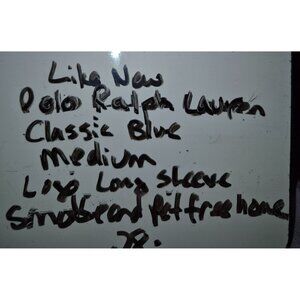 Like New
Polo Ralph Lauren
Classic Blue
medium
Long sleeve
pet free home
28.